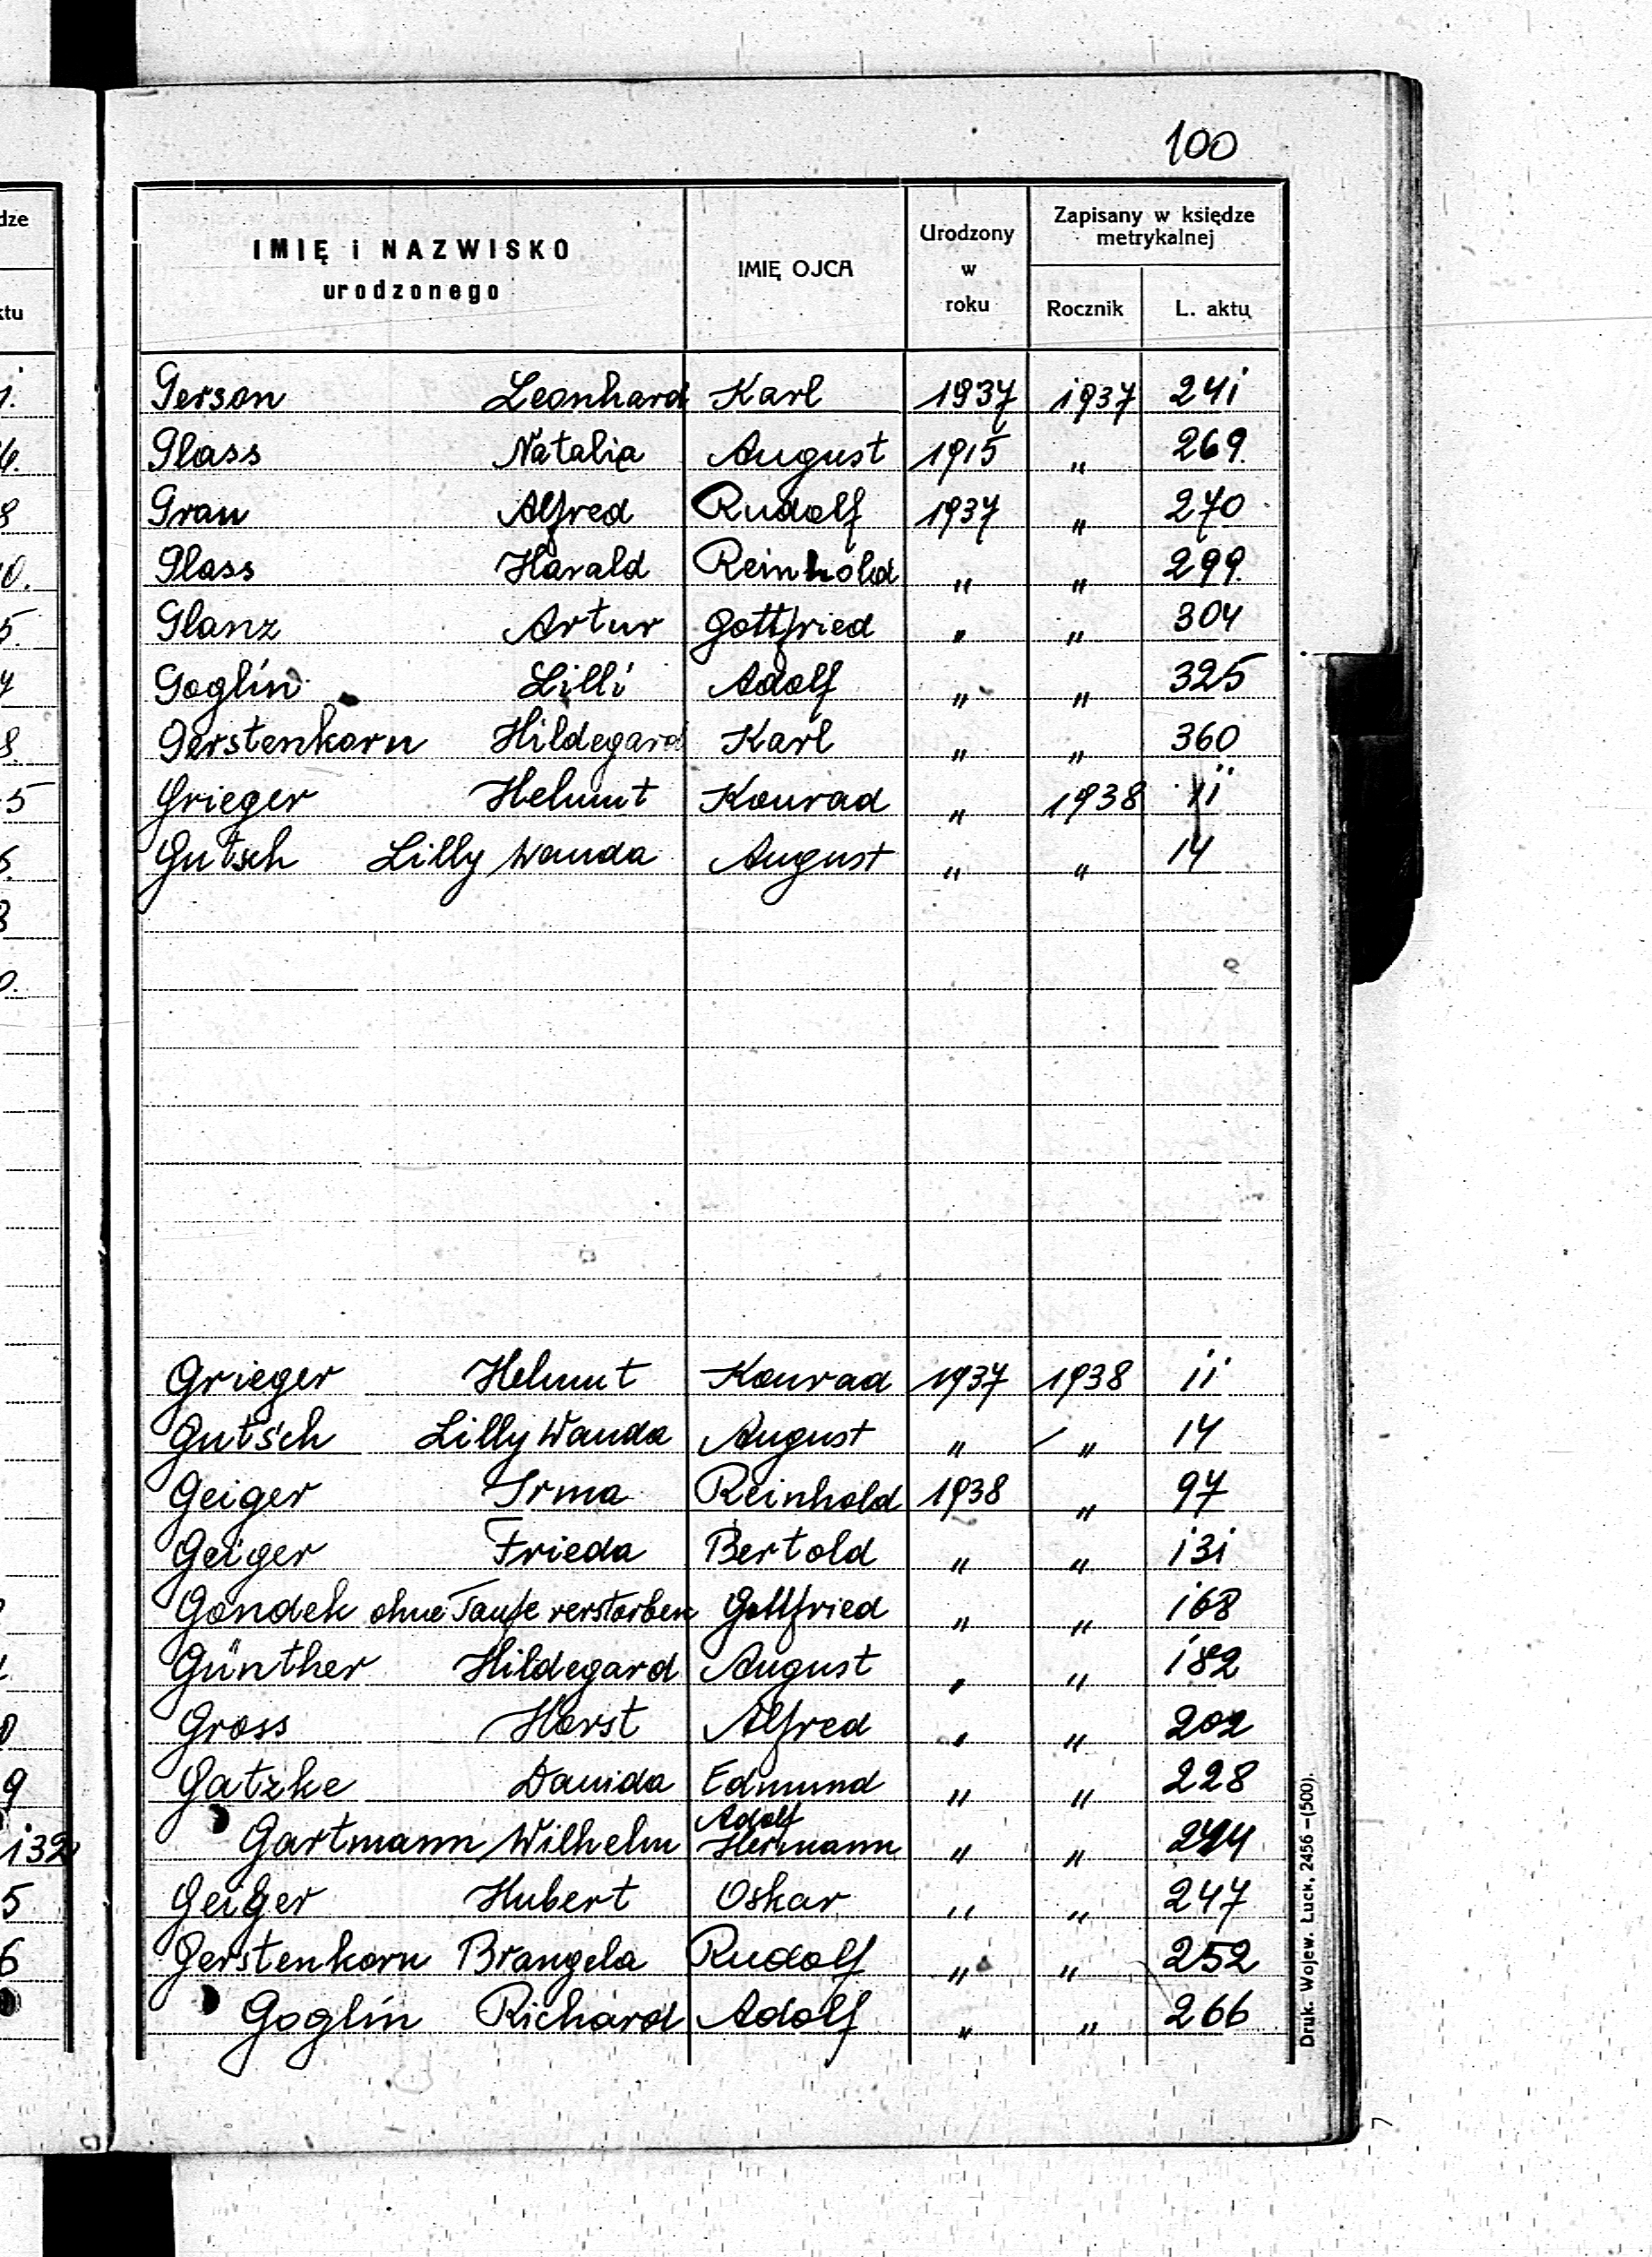 100
IMIĘ i NAZWISKO
urodzonego
IMIĘ OJCA
Urodzony
w
roku
Zapisany w księdze
metrykalnej
Rocznik
L. aktu
Gerson Leonhard Karl 1937 1937 241
Glass Natalia August 1915 " 269.
Grau Alfred Rudolf 1937 " 270
Glass Harald Reinhold " " 299.
Glanz Artur Gottfried " " 304
Goglin Lilli Adolf " " 325
Gerstenkorn Hildegard Karl " " 360
Grieger Helmut Konrad " 1938 11
Gutsch Lilly Wanda August " " 14
Grieger Helmut Konrad 1937 1938 11
Gutsch Lilly Wanda August " " 14
Geiger Irma Reinhold 1938 " 97
Geiger Frieda Bertold " " 131
Gondek ohne Taufe verstorben Gottfried " " 168
Günther Hildegard August " " 182
Gross Horst Alfred " " 202
Gatzke Danida Edmund " " 228
Adolf
Gartmann Wilhelm Hermann " " 244
Geiger Hubert Oskar " " 247
Gerstenkorn Brangela Rudolf " " 252
Goglin Richard Adolf " " 266
Druk. Wojew. Łuck, 2456 –(500).
dze
ktu
132